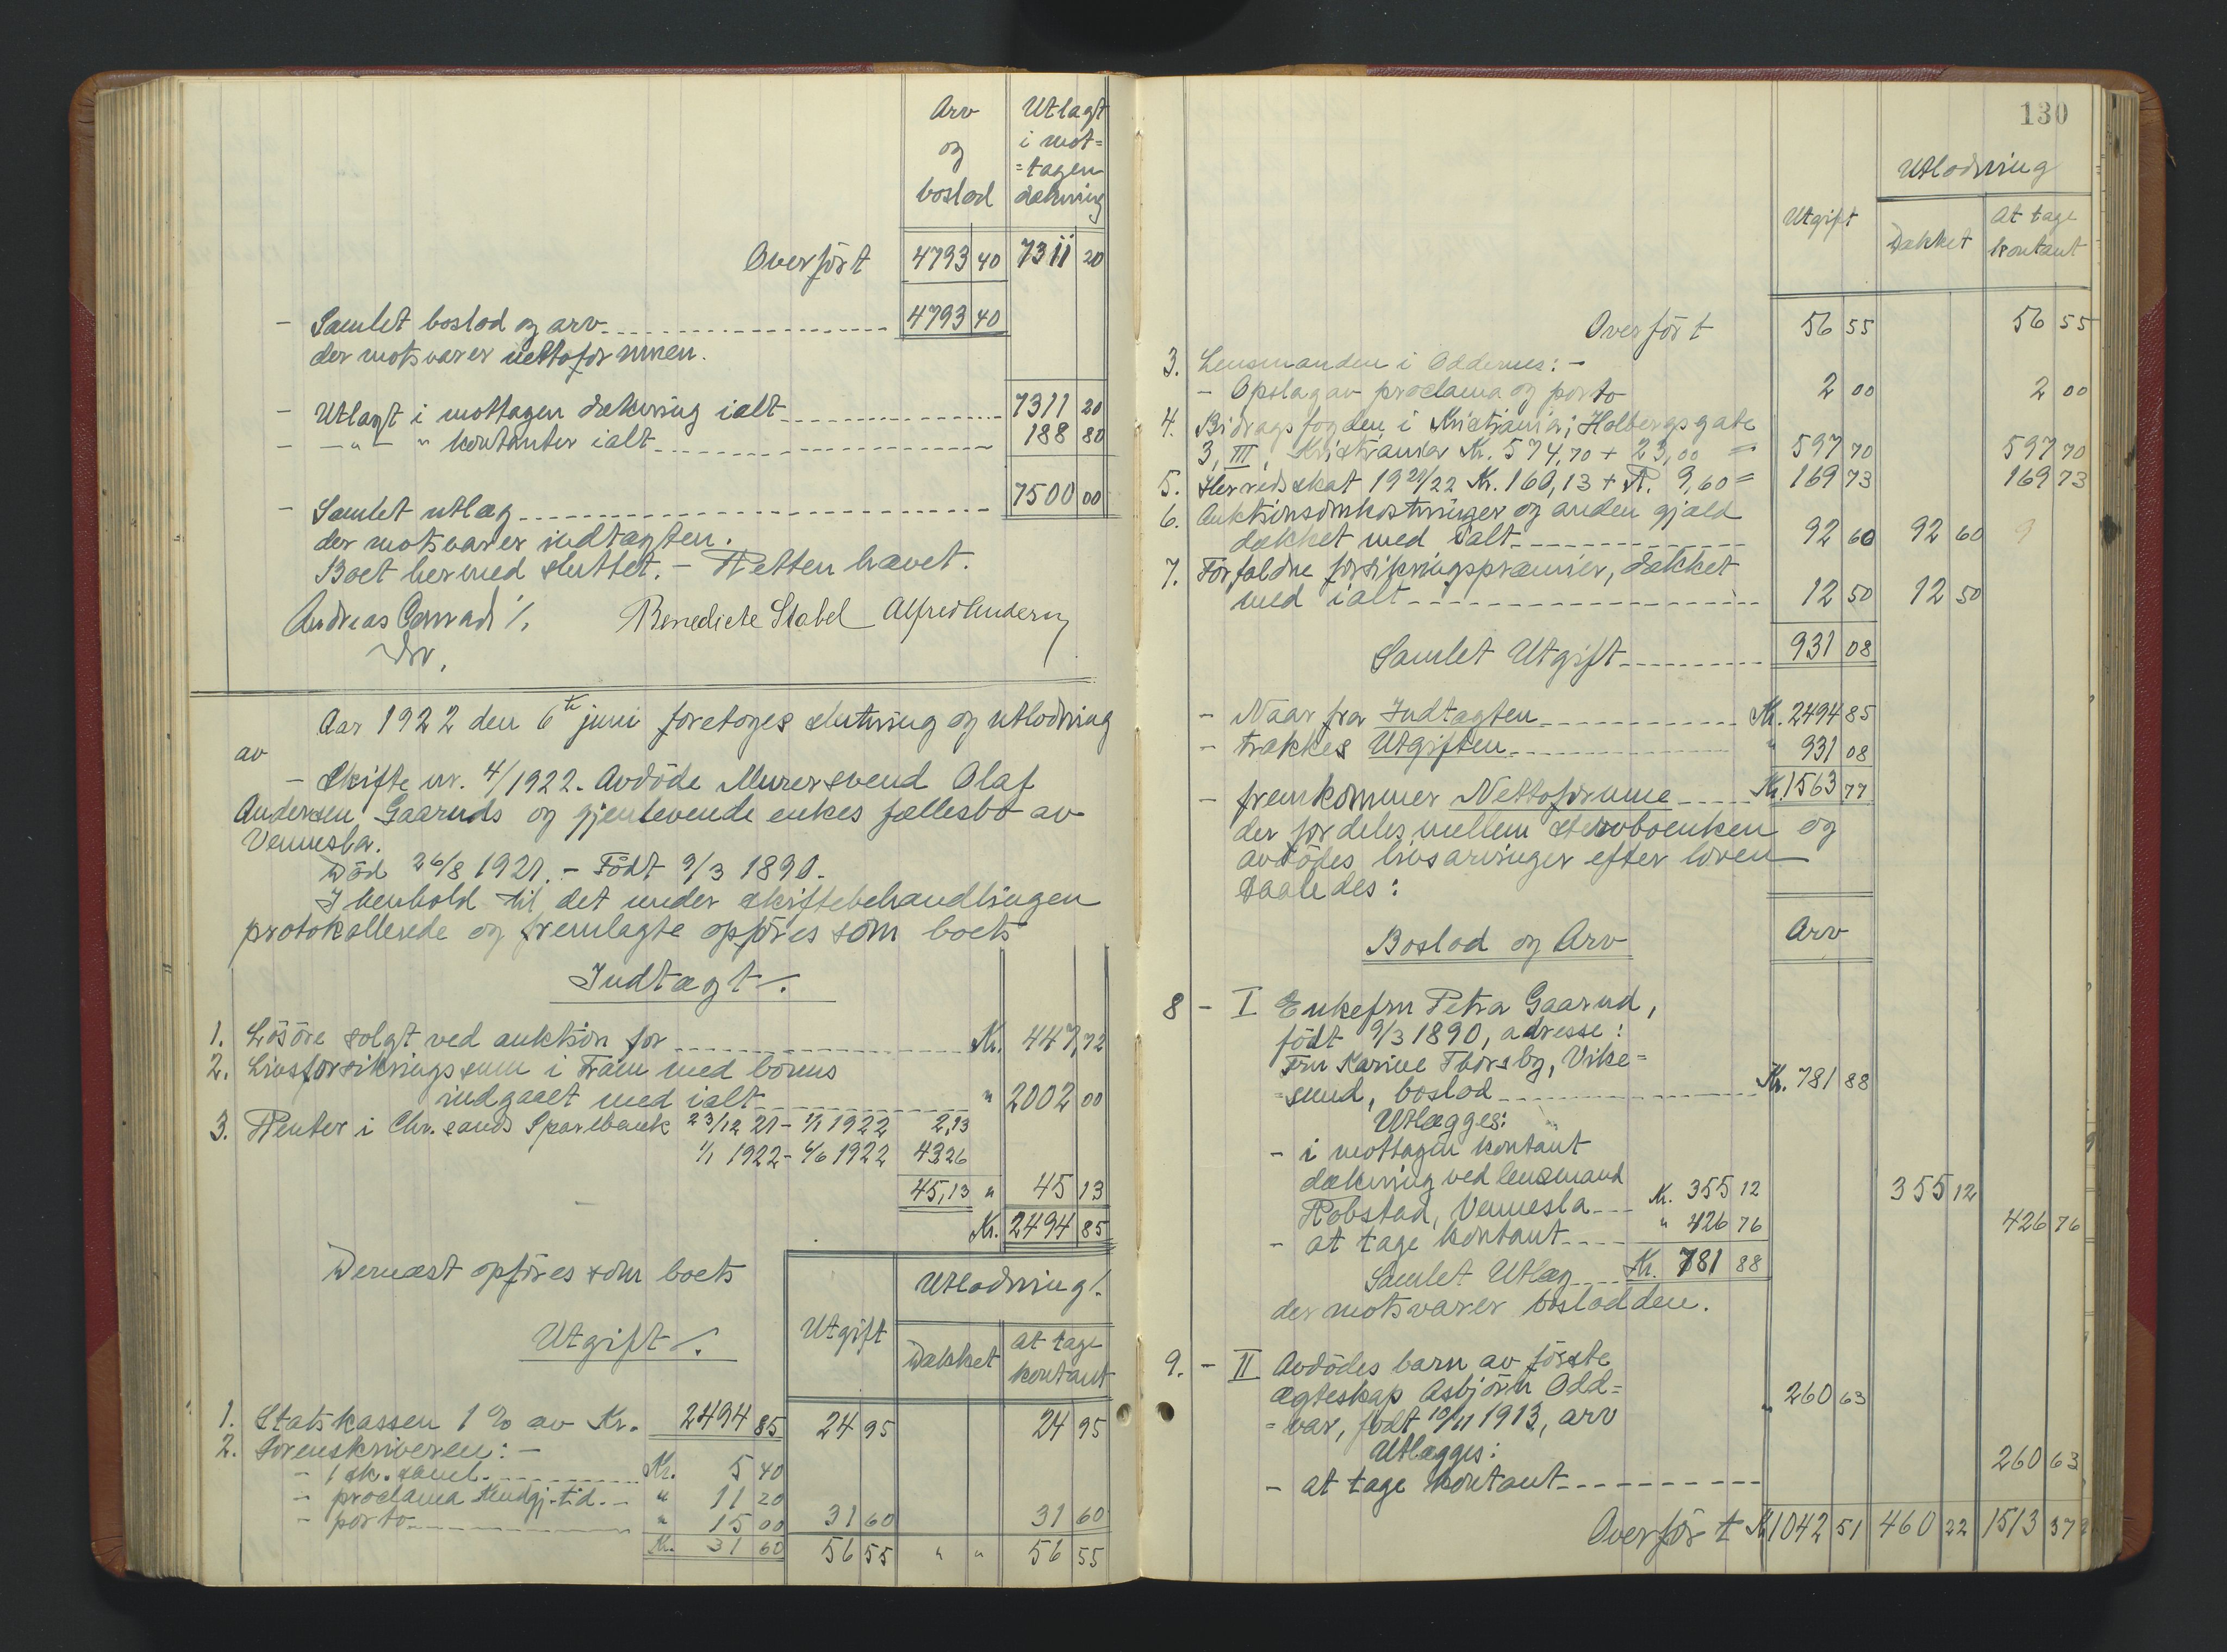 Arv Utlagt
og i mot=
=tagen
boslod dækning
Overført 4793 40 7311 20
- Samlet boslod og arv 4793 40
der motsvarer nettoformuen.
- Utlagt i mottagen dækning ialt 7311 20
- -"- " kontanter ialt 188 80
- Samlet utlæg 7500 00
der motsvarer indtægten.
Boet hermed sluttet. - Retten hævet.
Andreas Conradi Benedicte Stabel Alfred Andersen
Aar 1922 den 6te juni foretoges slutning og utlodning
av
- Skifte nr. 4/1922. Avdöde Murersvend Olaf
Andersen Gaaruds og gjenlevende enkes fællesbo av
Vennesla.
Död 26/8 1921. - Född 9/3 1890.
I henhold til det under skiftebehandlingen
protokollerede og fremlagte opföres som boets
Indtægt.
1. Lösöre solgt ved auktion for Kr. 447,72
2. Livsforsikringssum i Fram med bonus
indgaaet med ialt " 2002 00
3. Renter i Chr.sands Sparebank 23/12 21 - 1/1 1922 2,13
1/1 1922 - 6/6 1922 43 26
45,13 " 45 13
Kr. 2494 85
Dernæst opföres som boets
Utlodning.
Utgift. Utgift Dækket at tage
kontant
1. Statskassen 1 % av Kr. 2494 85 24 95 24 95
2. Sorenskriveren: -
- 1 sk. saml. Kr. 5 40
- proclama Kundgj. tid. " 11 20
- porto " 15 00 31 60 31 60
Kr. 31 60 56 55 " " 56 55
130
Utlodning
Utgift Dækket At tage
kontant
Overfört 56 55 56 55
3. Lensmanden i Oddernes: -
- Opslag av proclama og porto 2 00 2 00
4. Bidragsfogden i Kristiania; Holbergsgate
3, III, Kristiania Kr. 574,70 + 23,00 = 597 70 597 70
5. Herredsskat 1921/22 Kr. 160,13 + R. 9,60 = 169 73 169 73
6. Auktionsomkostninger og anden gjæld
dækket med ialt 92 60 92 60
7. Forfaldne forsikringspræmier, dækket
med ialt 12 50 12 50
Samlet Utgift 931 08
- Naar fra Indtægten Kr. 2494 85
- trækkes Utgiften " 931 08
- fremkommer Nettoformue Kr. 1563 77
der fordeles mellem sterboenken og
avdödes livsarvinger efter loven
saaledes:
Boslod og Arv Arv
8 - I Enkefru Petra Gaarud,
född 9/3 1890, adresse:
Fru Karine Thorsby, Vike=
=sund, boslod Kr. 781 88
Utlægges:
- i mottagen kontant
dækning ved lensmand
Robstad, Vennesla Kr. 355 12 355 12
- at tage kontant " 426 76 426 76
Samlet Utlæg Kr. 781 88
der motsvarer boslodden.
9. - II Avdödes barn av förste
ægteskap Asbjörn Odd=
=var, född 10/11 1913, arv " 260 63
Utlægges:
- at tage kontant 260 63
Overfört Kr 1042 51 460 22 1513 37